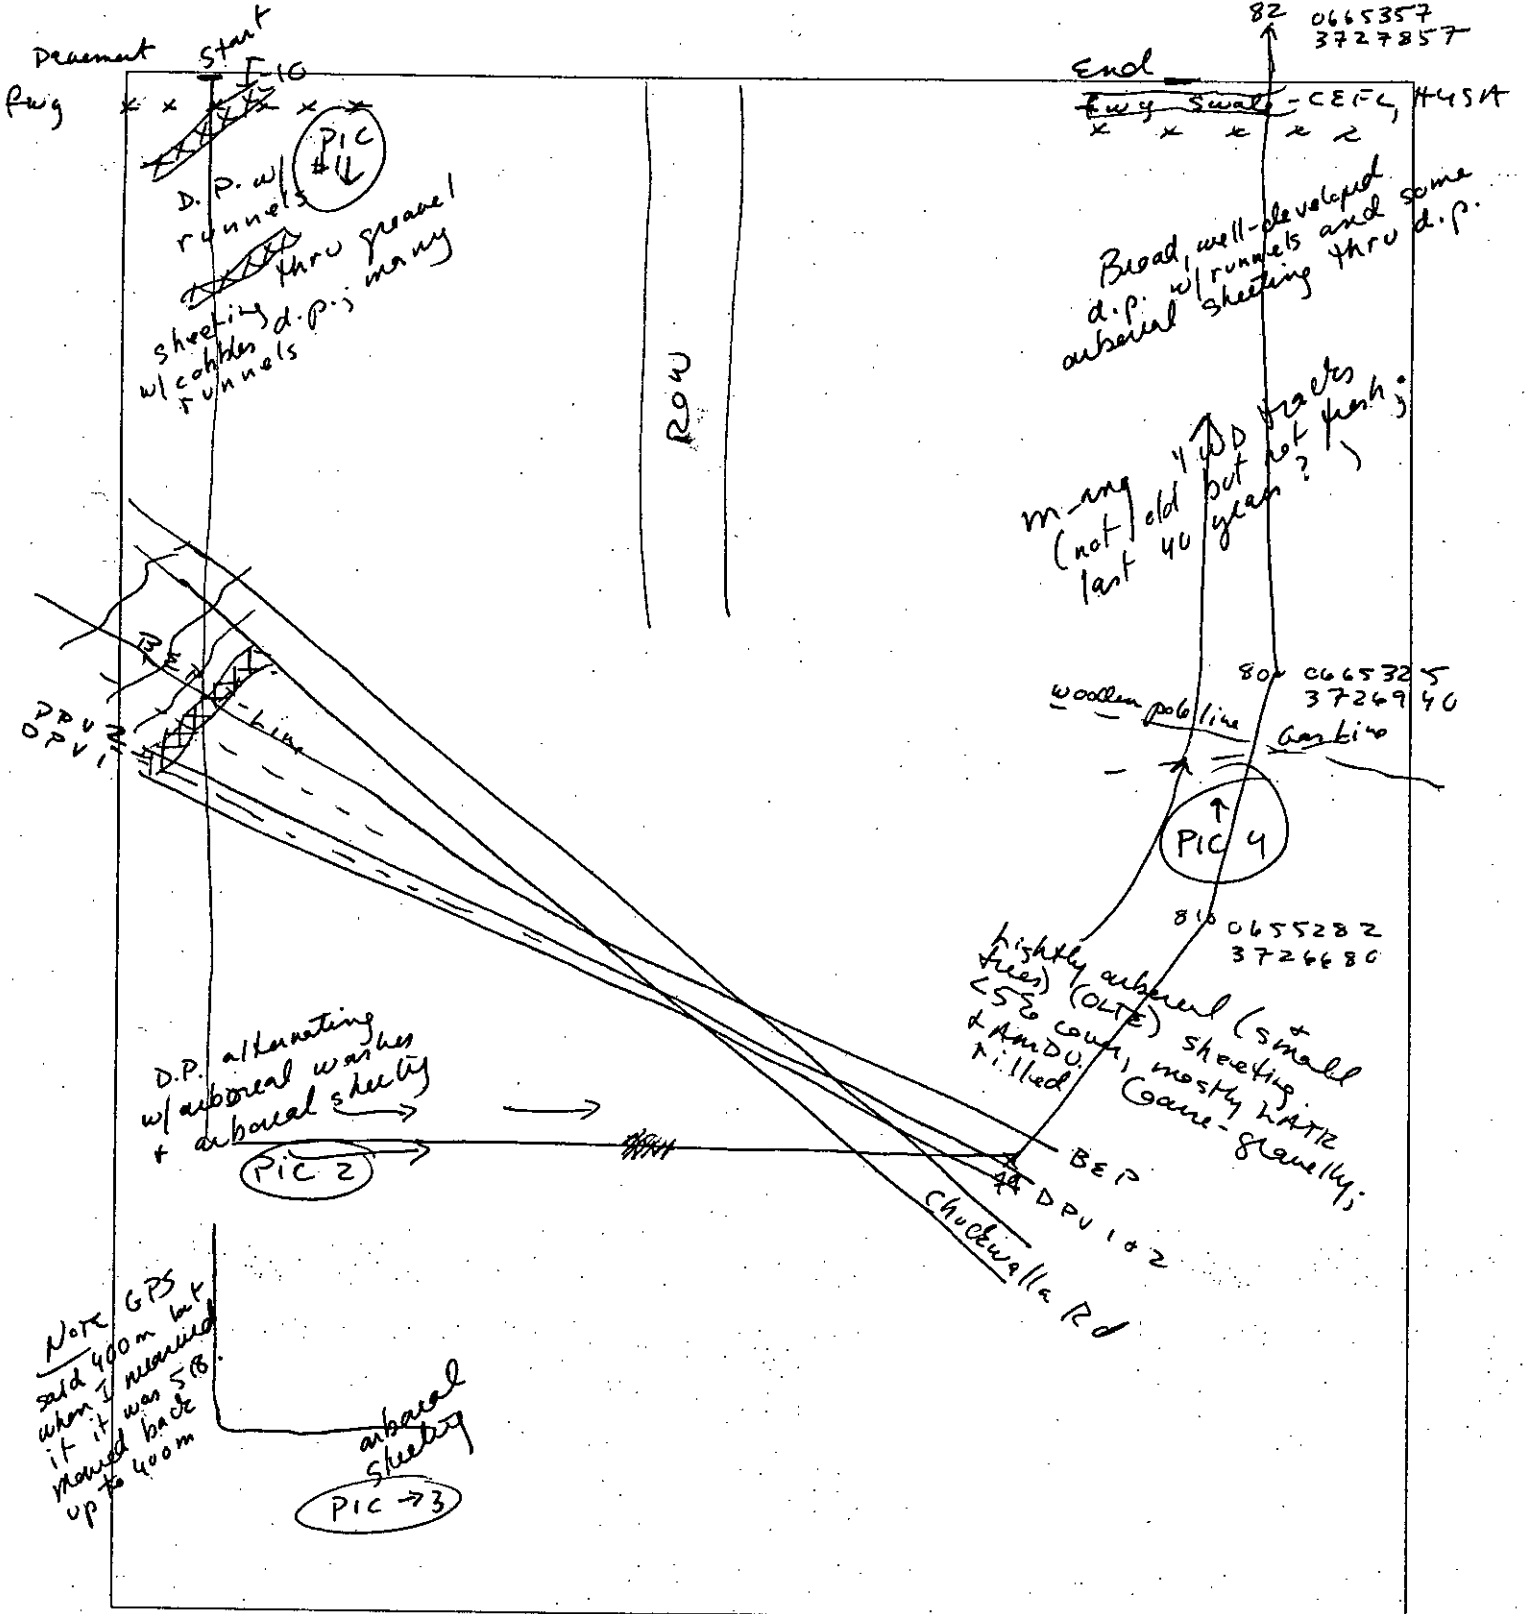 start
I-10
fwy
PIC
#1 ↓
D.P. w/
runnels
sheeting thru gravel
w/ cobbles d.p.; many
runnels
ROW
82 0665357
3727857
End
fwy swale - CEFL, HYSA
Broad, well-developed
d.p. w/ runnels and some
arboreal sheeting thru d.p.
many 4WD tracks
(not old but not fresh;
last 40 years?)
80 0665325
3726940
wooden pole line
Gas Line
↑
PIC 4
810 0655282
3726680
Lightly arboreal (small
trees) (OLTE) sheeting.
<5% cover, mostly LATR
+ AMDU. Coarse-gravelly;
rilled
Line
DPV 2
DPV 1
D.P. alternating
w/ arboreal washes
+ arboreal sheeting
PIC 2
BEP
DPV 1 & 2
Chuckwalla Rd
Note GPS
said 400m but
when I measured
it it was 518.
moved back
up to 400m
arboreal
sheeting
PIC → 3